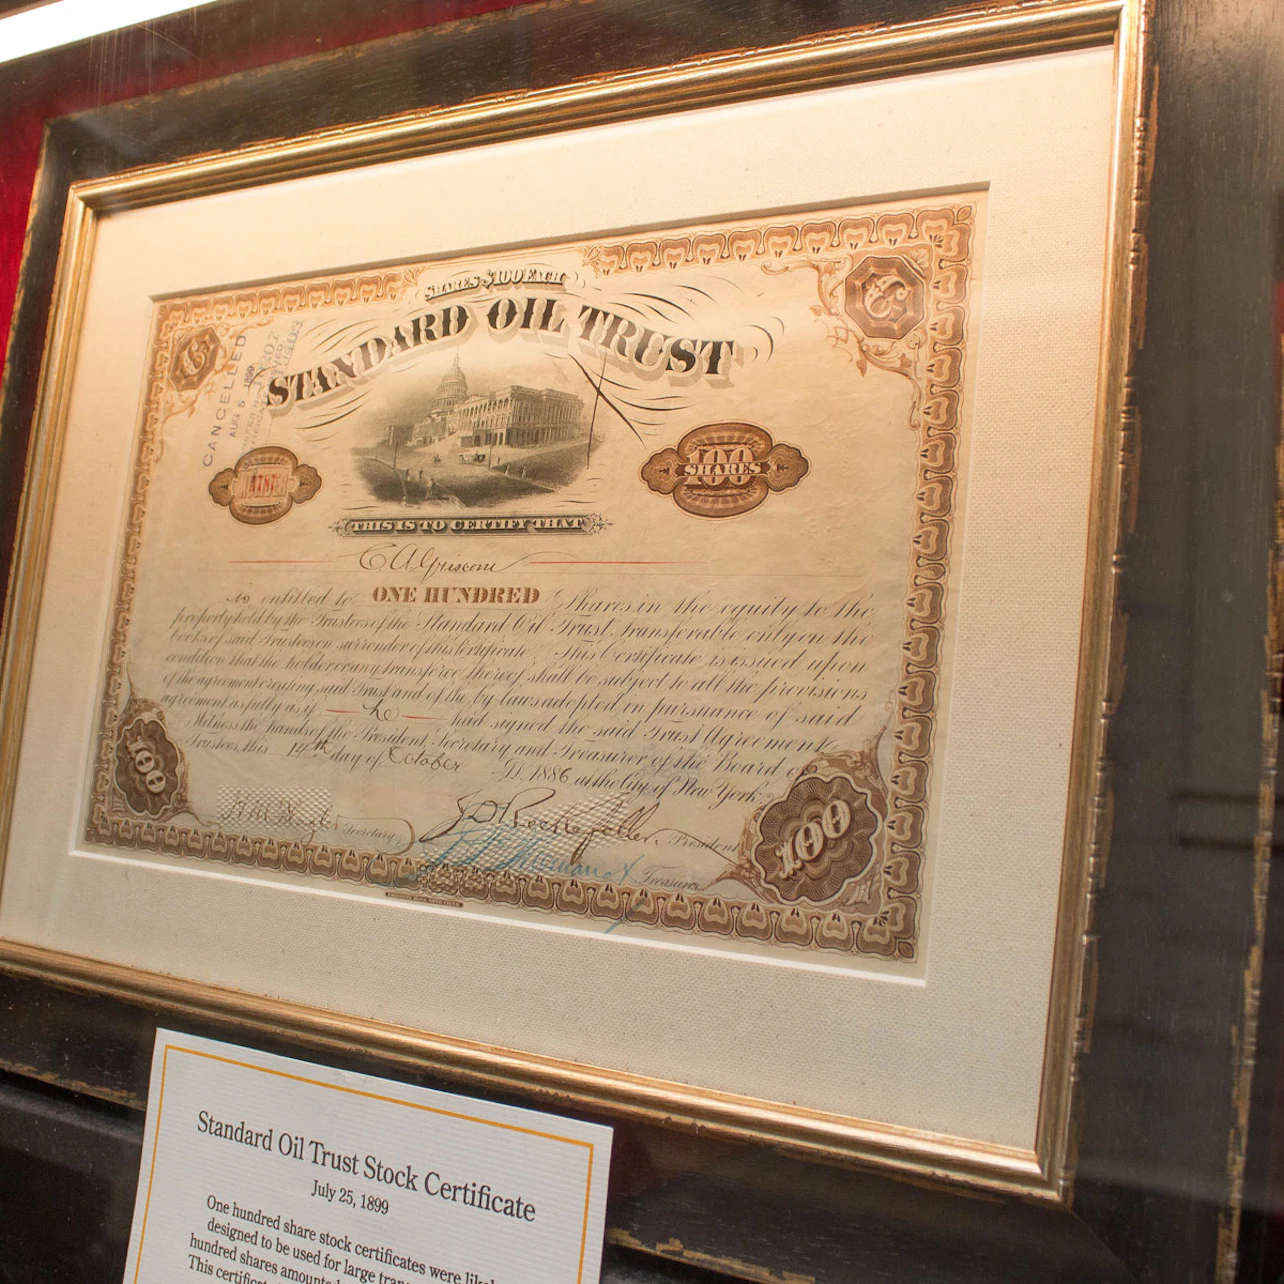 SHARES $100 EACH
STANDARD OIL TRUST
CANCELLED
AUG 5 1899
100
SHARES
THIS IS TO CERTIFY THAT
C A Griscom
is entitled to ONE HUNDRED Shares in the equity to the
property held by the Trustees of the Standard Oil Trust, transferable only on the
books of said Trustees on surrender of this Certificate. This Certificate is issued upon
condition that the holder or any transferee thereof shall be subject to all the provisions
of the agreement creating said Trust and of the by-laws adopted in pursuance of said
agreement as fully as if he had signed the said Trust Agreement.
Witness the hands of the President, Secretary and Treasurer of the Board of
Trustees, this 14th day of October A.D. 1886 at the City of New York.
Secretary,
J D Rockefeller, President
Treasurer
100
100
Standard Oil Trust Stock Certificate
July 25, 1899
One hundred share stock certificates were
designed to be used for large
hundred shares
This